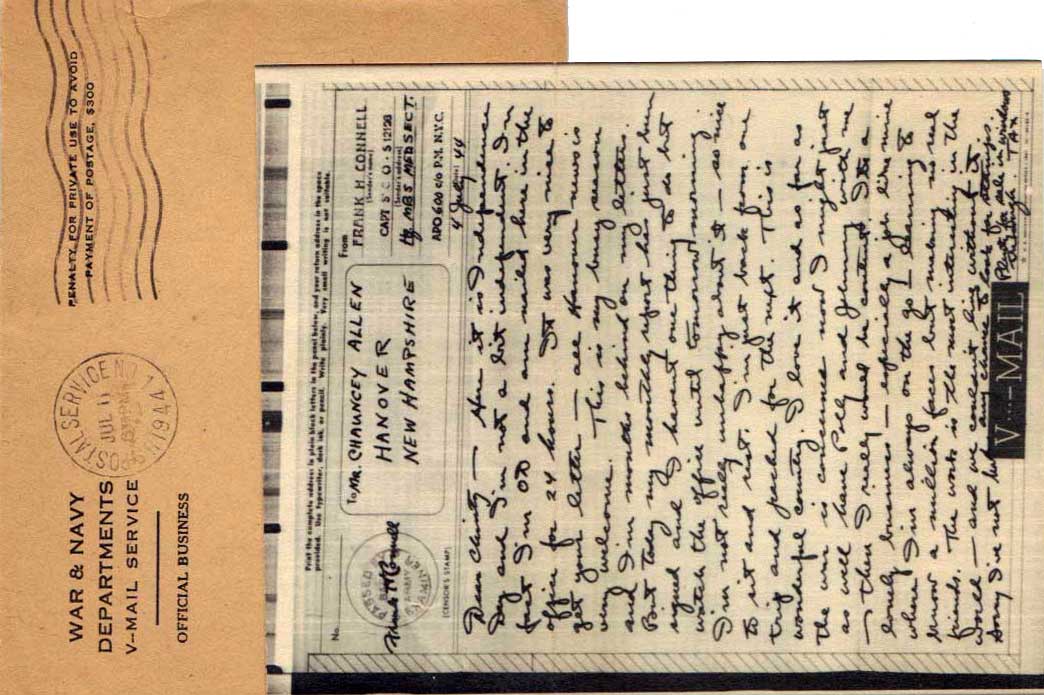 WAR & NAVY
DEPARTMENTS
V-MAIL SERVICE
OFFICIAL BUSINESS
U.S. POSTAL SERVICE NO. 1
JUL 11
1944
PENALTY FOR PRIVATE USE TO AVOID
PAYMENT OF POSTAGE, $300
Print the complete address in plain block letters in the panel below, and your return address in the space
provided. Use typewriter, dark ink, or pencil. Write plainly. Very small writing is not suitable.
No.
PASSED BY
ARMY EXAMINER
(CENSOR'S STAMP)
To Mr. CHAUNCEY ALLEN
HANOVER
NEW HAMPSHIRE
From
FRANK H CONNELL
(Sender's name)
CAPT SN C O-512128
(Sender's address)
Hq. MBS MEDSECT.
APO 600 c/o P.M. N.Y.C.
4 July 44
Dear Chinty — Here it is Independence
Day and I'm not a bit independent. In
fact I'm OD and am nailed here in the
office for 24 hours. It was very nice to
get your letter — all Hanover news is
very welcome. This is my busy season
and I'm months behind on my letters.
But today my monthly report has just been
signed and I haven't one thing to do but
watch the office until tomorrow morning
I'm not really unhappy about it — so nice
to sit and rest. I'm just back from one
trip and packed for the next. This is
wonderful country. I love it and as far as
the war is concerned now I might just
as well have Polly and Johnny with me
— then I really would be content. It's a
lonely business — especially a job like mine
where I'm always on the go — learning to
know a million faces but making no real
friends. The work is the most interesting in the
world — and we couldn't live without it.
Sorry I've not had any chance to look for stamps.
Plenty for sale in windows
tho though. TAX
V···—MAIL